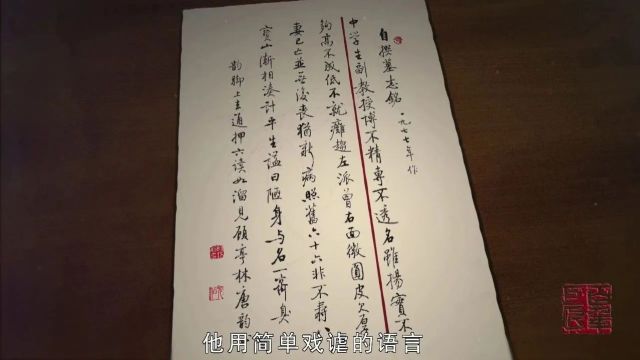 自撰墓志銘 一九七七年作
中学生副教授博不精專不透名雖揚實不
夠高不成低不就癱趨左派曾右面微圓皮欠厚
妻已亡並無後喪猶新病照舊六十六非不壽八
寶山漸相湊計平生謚曰陋身與名一齊臭
韵脚上去通押六读如溜見顧亭林唐韵
他用简单戏谑的语言